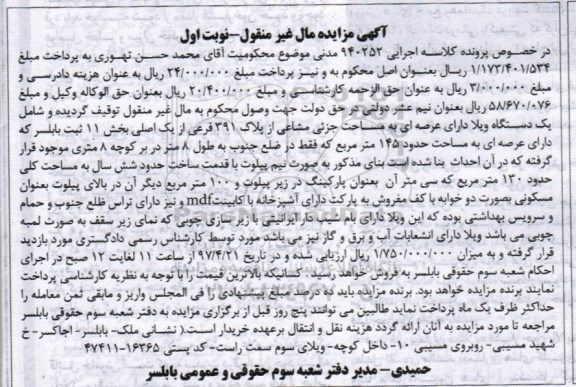 آگهی مزایده مال غیر منقول-نوبت اول
در خصوص پرونده کلاسه اجرایی ۹۴۰۲۵۲ مدنی موضوع محکومیت آقای محمد حسن تهوری به پرداخت مبلغ
۱/۱۷۳/۴۰۱/۵۳۴ ریال بعنوان اصل محکوم به و نیز پرداخت مبلغ ۲۴/۰۰۰/۰۰۰ ریال به عنوان هزینه دادرسی و
مبلغ ۳/۰۰۰/۰۰۰ ریال به عنوان حق الزحمه کارشناسی و مبلغ ۲۰/۴۰۰/۰۰۰ ریال بعنوان حق الوکاله وکیل و مبلغ
۵۸/۶۷۰/۰۷۶ ریال بعنوان نیم عشر دولتی در حق دولت جهت وصول محکوم به مال غیر منقول توقیف گردیده و شامل
یک دستگاه ویلا دارای عرصه ای به مساحت جزئی مشاعی از پلاک ۳۹۱ فرعی از یک اصلی بخش ۱۱ ثبت بابلسر که
دارای عرصه ای به مساحت حدود ۱۴۵ متر مربع که فقط در ضلع جنوب به طول ۸ متر در بر کوچه ۸ متری موجود قرار
گرفته که در آن احداث بنا شده است بنای مذکور به صورت نیم پیلوت با قدمت ساخت حدود شش سال به مساحت کلی
حدود ۱۳۰ متر مربع که سی متر آن بعنوان پارکینگ در زیر پیلوت و ۱۰۰ متر مربع دیگر آن در بالای پیلوت بعنوان
مسکونی بصورت دو خوابه با کف مفروش به پارکت دارای آشپزخانه با کابینت mdf و نیز دارای تراس ظلع جنوب و حمام
و سرویس بهداشتی بوده که این ویلا دارای بام شیب دار ایرانیتی با زیر سازی چوبی که نمای زیر سقف به صورت لمبه
چوبی می باشد ویلا دارای انشعابات آب و برق و گاز نیز می باشد مورد توسط کارشناس رسمی دادگستری مورد بازدید
قرار گرفته و به میزان ۱/۷۵۰/۰۰۰/۰۰۰ ریال ارزیابی شده و در تاریخ ۹۷/۴/۲۱ از ساعت ۱۱ لغایت ۱۲ صبح در اجرای
احکام شعبه سوم حقوقی بابلسر به فروش خواهد رسید. کسانیکه بالاترین قیمت را با توجه به نظریه کارشناسی پرداخت
نمایند برنده مزایده خواهد بود. برنده مزایده باید ده درصد مبلغ پیشنهادی را فی المجلس واریز و مابقی ثمن معامله را
حداکثر ظرف یک ماه پرداخت نماید طالبین می توانند پنج روز قبل از برگزاری مزایده به دفتر شعبه سوم حقوقی بابلسر
مراجعه تا مورد مزایده به آنان ارائه گردد هزینه نقل و انتقال برعهده خریدار است.( نشانی ملک- بابلسر- اجاکسر- خ
شهید مسیبی- روبروی مسیبی ۱۰- داخل کوچه- ویلای سوم سمت راست- کد پستی ۱۶۳۶۵-۴۷۴۱۱
حمیدی – مدیر دفتر شعبه سوم حقوقی و عمومی بابلسر